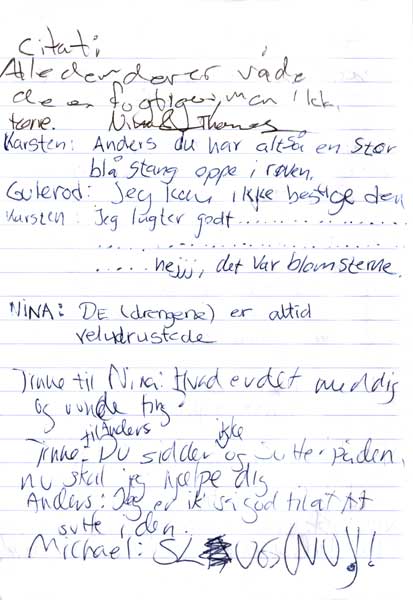 Citat:
Alle der der er våde
de er fugtige, men ikk.
tørre. Nina & Thomas
Karsten: Anders du har altså en stor
blå stang oppe i røven.
Gulerod: Jeg kan ikke bestige den
Karsten: Jeg lugter godt..................
..............................
...... nejjj, det var blomsterne.
NINA: DE (drengene) er altid
veludrustede
Trine til Nina: Hvad er det med dig
og runde ting
til Anders ikke
Trine: Du sidder og sutter på den,
nu skal jeg hjælpe dig
Anders: Jeg er ik så god til at
sutte i den.
Michael: (NU)!!